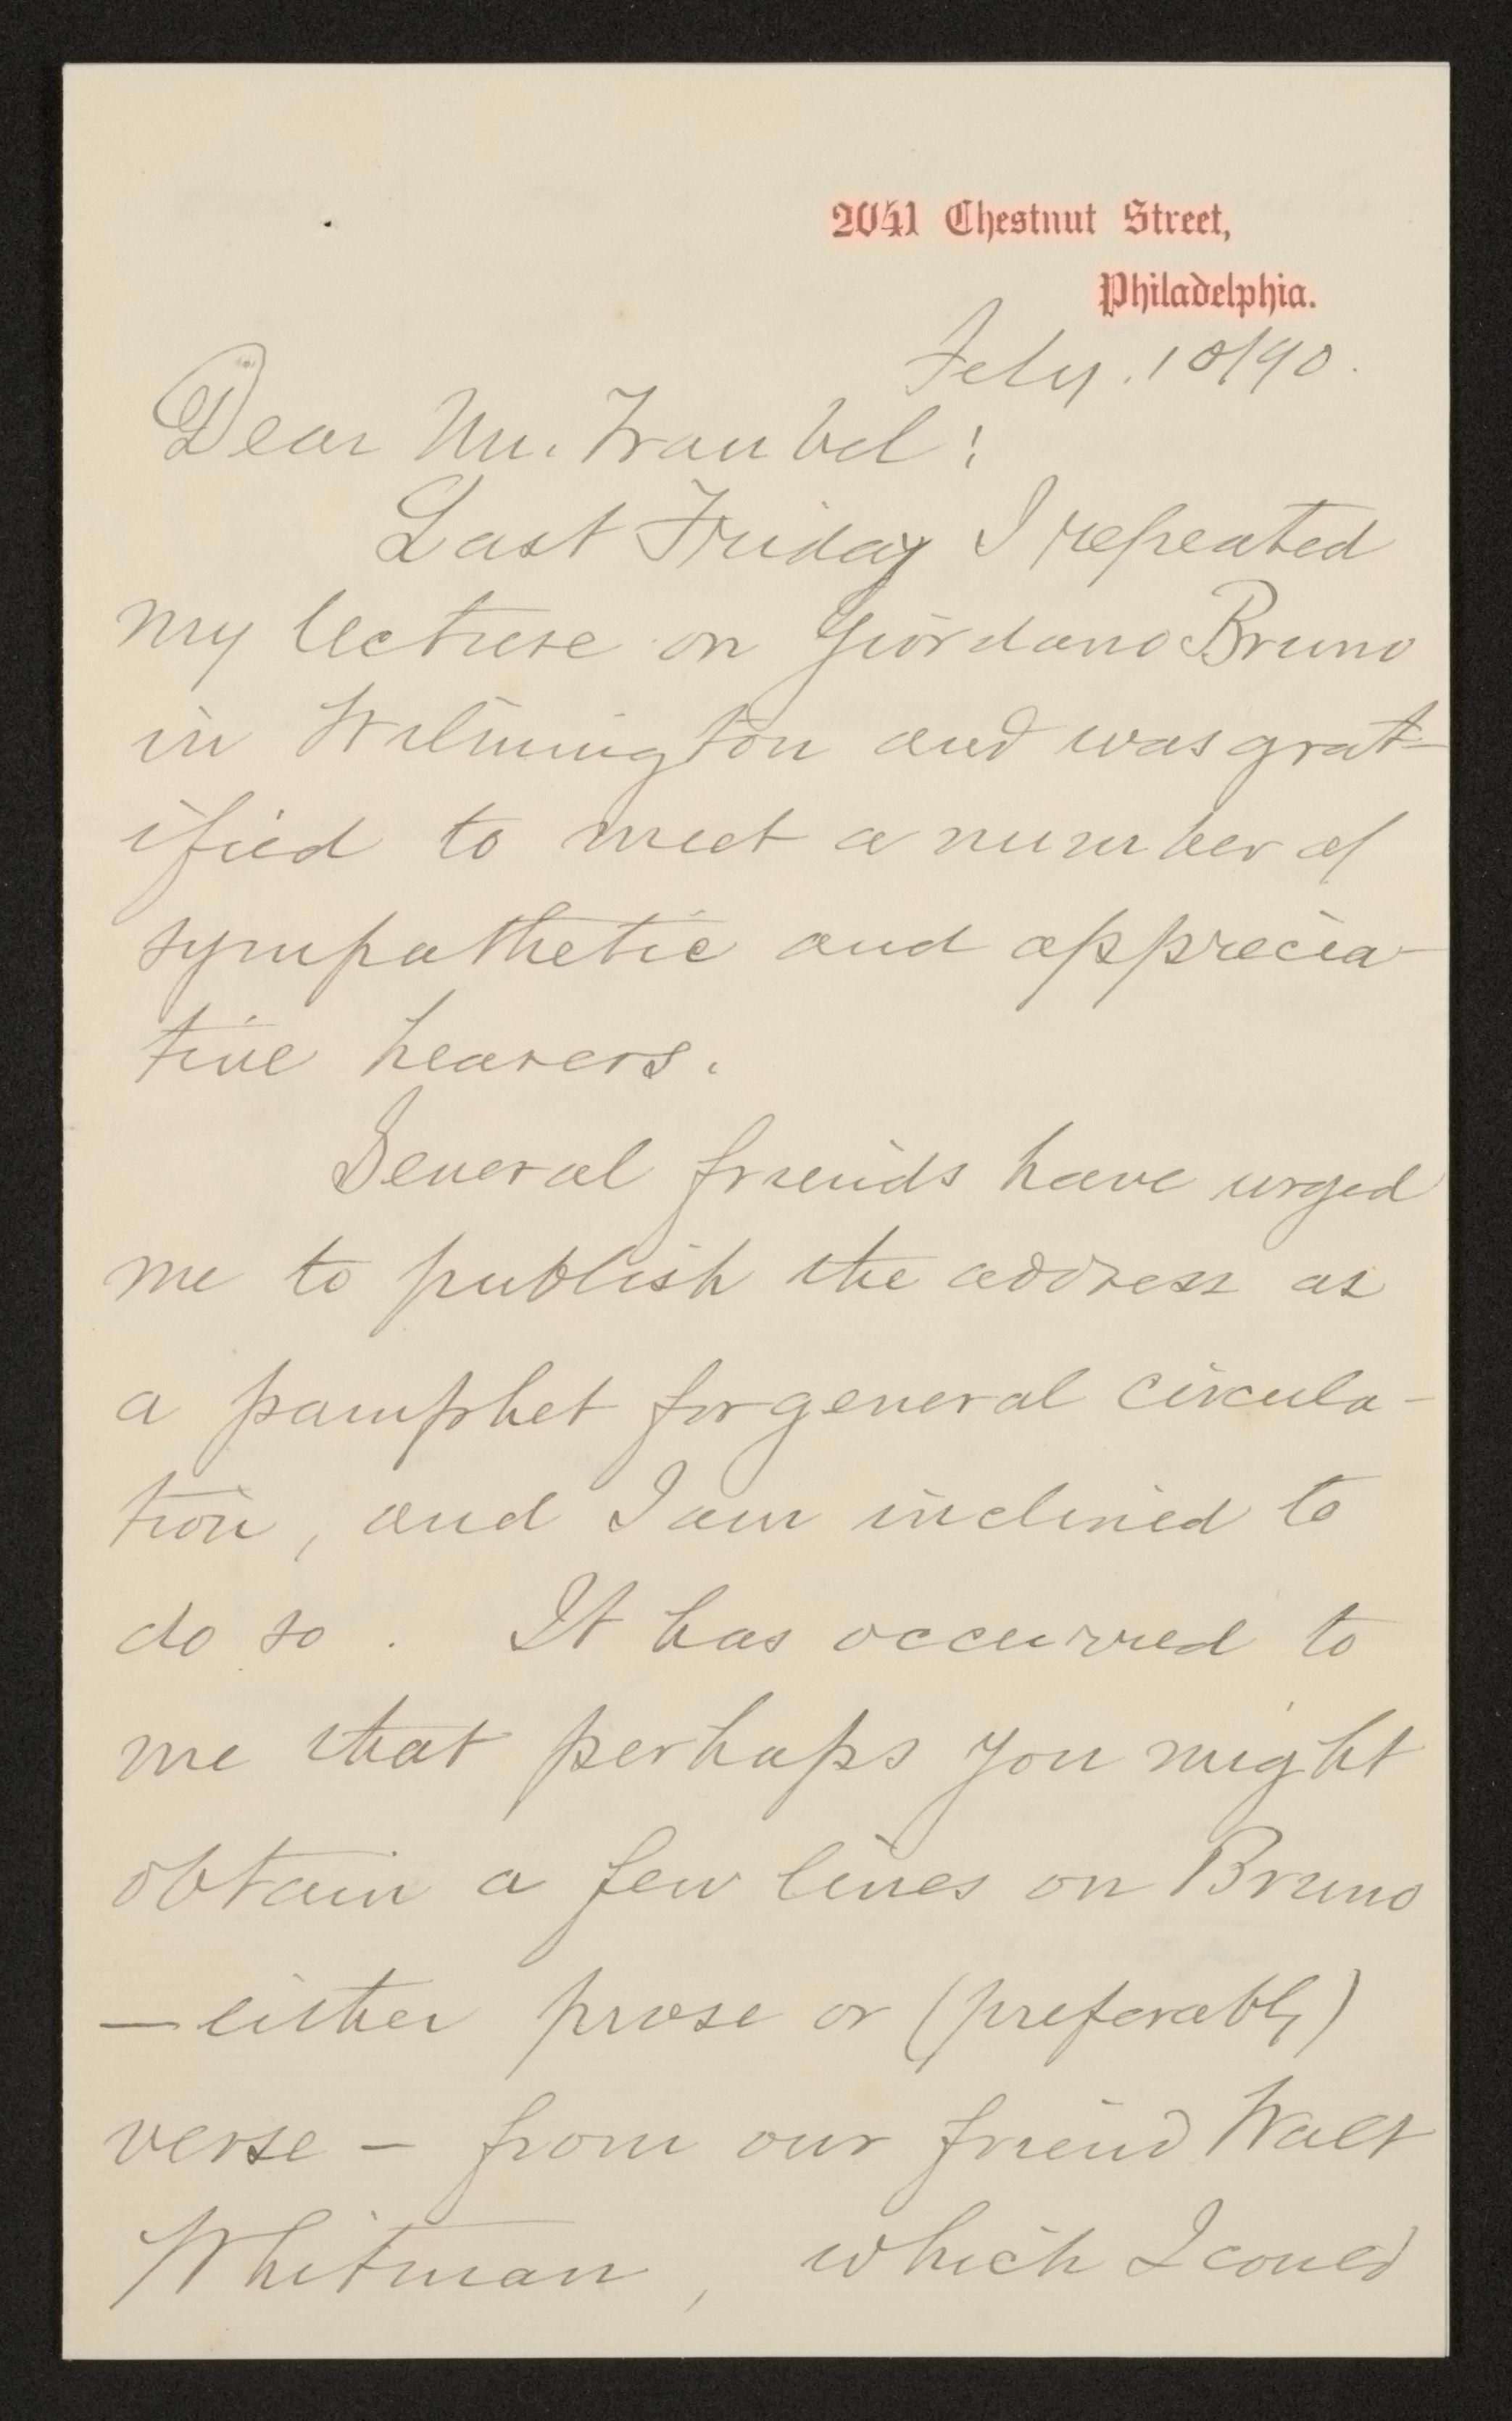 2041 Chestnut Street,
Philadelphia.
Feby. 10/90.
Dear Mr. Traubel:
Last Friday I repeated
my lecture on Giordano Bruno
in Wilmington and was grat-
ified to meet a number of
sympathetic and apprecia-
tive hearers.
Several friends have urged
me to publish the address as
a pamphet for general circula-
tion, and I am inclined to
do so. It has occurred to
me that perhaps you might
obtain a few lines on Bruno
— either prose or (preferably)
verse — from our friend Walt
Whitman, which I could